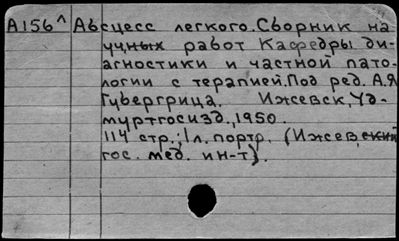 А156^ Абсцесс легкого. Сборник на
учных работ Кафедры ди-
агностики и частной пато-
логии с терапией. Под ред. А.Я
Губергрица. Ижевск, Уд-
муртгосизд., 1950.
114 стр.; 1 л. портр. (Ижевский
гос. мед. ин-т).